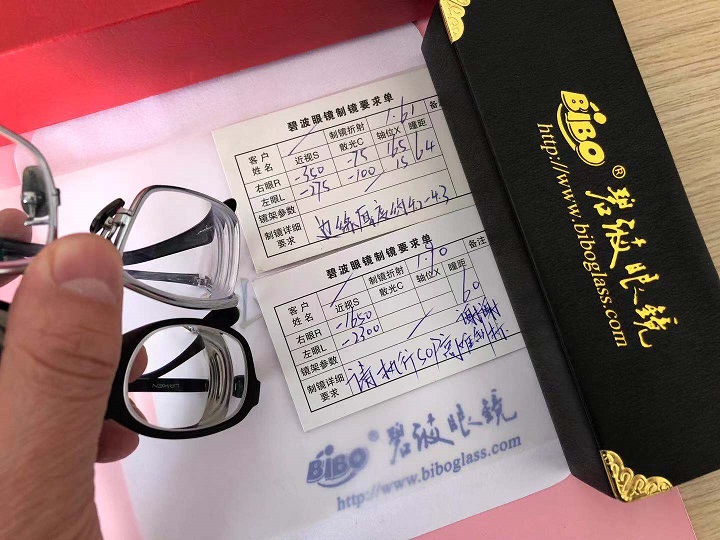 碧波眼镜制镜要求单
客户姓名
制镜折射
1.61
备注
近视S
散光C
轴位X
瞳距
右眼R
-350
-75
165
64
左眼L
-275
-100
15
镜架参数
制镜详细要求
边缘厚度约4.1-4.3
碧波眼镜制镜要求单
客户姓名
制镜折射
1.90
备注
近视S
散光C
轴位X
瞳距
右眼R
-1650
60
左眼L
-2300
镜架参数
制镜详细要求
请执行SOP高准
谢谢
BiBO® 碧波眼镜
http://www.biboglass.com
BiBO® 碧波眼鏡
http://www.biboglass.com